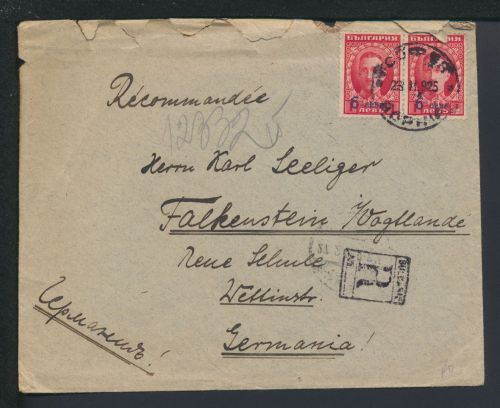 БЪЛГАРИЯ БЪЛГАРИЯ
СОФИЯ
6 лева 6 лева
Recommandée
Herrn Karl Seeliger
Falkenstein i/Vogtlande
Neue Schule
Wettinstr.
Germania!
Германия!
R